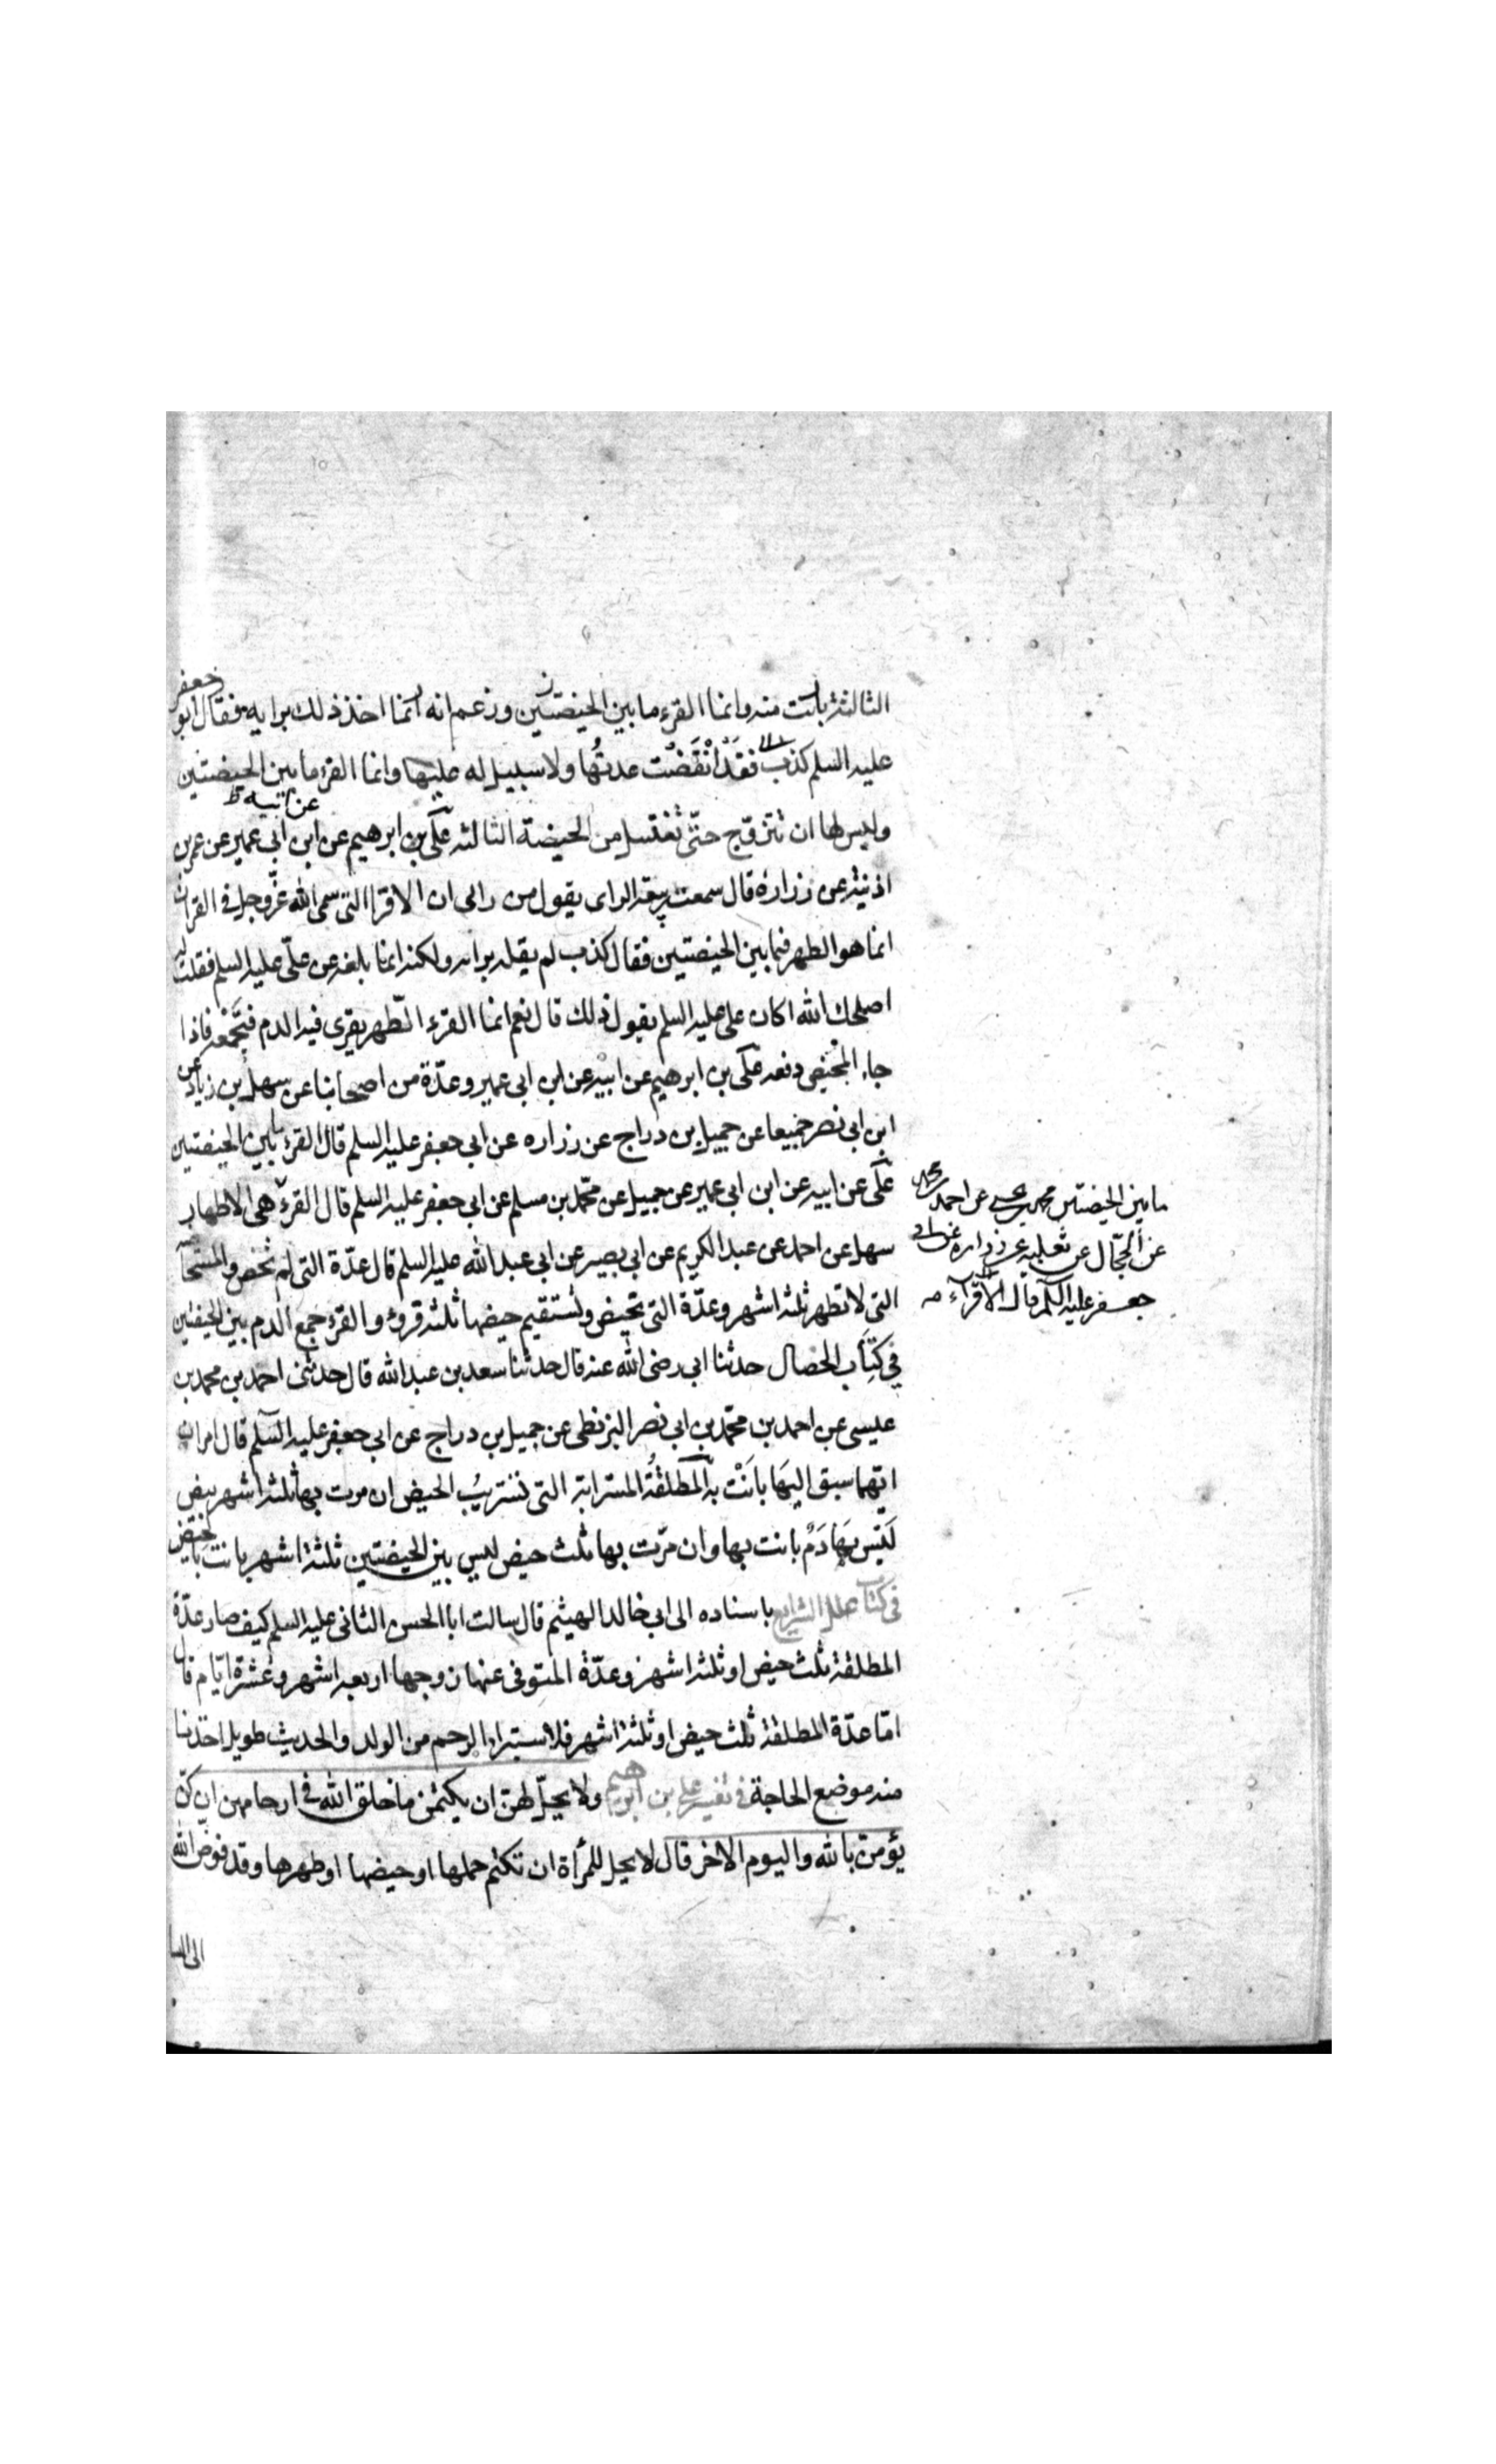 الثالثة بانت منه وانما القرء ما بين الحيضتين وزعم انه انما اخذ ذلك برايه فقال ابو جعفر
عليه السلم كذب فقد انْقَضَت عدتُها ولا سبيل له عليها وانما القرء ما بين الحيضتين
وليس لها ان تتزوّج حتّى تغتسل من الحيضة الثالثه علّى بن ابرهيم عن ابيه عن ابن ابي عمير عن عمر بن
اذنيه عن زرارة قال سمعت ربيعة الراى يقول من رائى ان الاقرا التى سمى الله عزّوجل فى القران
انما هو الطهر فيما بين الحيضتين فقال كذب لم يقله برايه ولكنه انما بلغه عن علّى عليه السلم فقلت له
اصلحك الله اكان على عليه السلم يقول ذلك قال نعم انما القرء الطّهر يقرى فيه الدم فيَجْمَعه فاذا
جاء المحيض دفعه علّى بن ابرهيم عن ابيه عن ابن ابى عمير وعدّة من اصحابنا عن سهل بن زياد عن
ابن ابى نصر جميعا عن جميل بن دراج عن زراره عن ابي جعفر عليه السلم قال القرء ما بين الحيضتين
علّى عن ابيه عن ابن ابى عمير عن جميل عن محّمد بن مسلم عن ابى جعفر عليه السلم قال القرء هى الاطهار
سهل عن احمد عن عبد الكريم عن ابي بصير عن ابى عبد الله عليه السلم قال عدّة التى لم تحض والمستحاضه
التى لا تطهر ثلثه اشهر وعدّة التى تحيض ويستقيم حيضها ثلثه قروء والقرء جمع الدم بين الحيضتين
في كتاب الخصال حدثنا ابى رضى الله عنه قال حدثنا سعد بن عبد الله قال حدثنى احمد بن محمد بن
عيسى عن احمد بن محّمد بن ابى نصر البزنطى عن جميل بن دراج عن ابى جعفر عليه السّلم قال امران
ايّهما سبق اليهَا بانَتْ به المطلقُة المسترابة التى تَستريبُ الحيض ان مرت بها ثلثه اشهر بيض
لَيْس بهَا دَمٌ بانت بها وان مرّت بها ثلث حيض ليس بين الحيضتين ثلثة اشهر بانت بالحيض
فى كتاب علل الشرايع باسناده الى ابى خالد الهيثم قال سالت ابا الحسن الثانى عليه السلم كيف صار عدّة
المطلقة ثلث حيض او ثلثه اشهر وعدّة المتوفى عنها زوجها اربعه اشهر وعشرة ايّام قال
امّا عدّة المطلقة ثلث حيض او ثلثة اشهر فلاستبراء الرحم من الولد والحديث طويل اخذنا
منه موضع الحاجة فى تفسير على بن ابرهيم ولا يحلّ لهنّ ان يكتمن ما خلق الله فى ارحامهن ان كنّ
يؤمنّ بالله واليوم الاخر قال لا يحل للمرأة ان تكتم حملها او حيضها او طهرها وقد فوّض الله
ما بين الحيضتين محمد بن يحيى عن احمد بن محمد
عن الحجّال عن ثعلبه عن زراره عن ابى
جعفر عليه السلم قال الاقراء